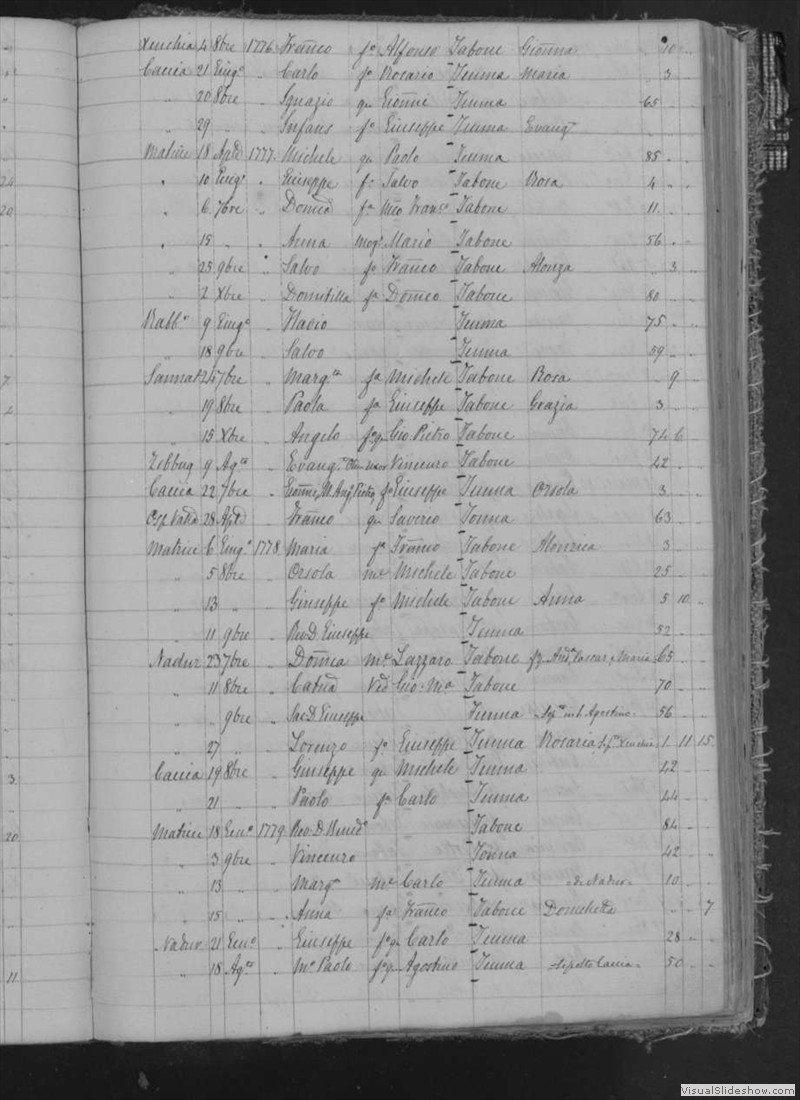 Xeuchia 4 8bre 1776 Franco fo Alfonso Tabone Gionna 10
Caccia 21 Eiugo " Carlo fo Rosario Teuma Maria 3
" 20 8bre " Ignazio qm Gionni Teuma 65
" 29 " Infans fo Giuseppe Teuma Evangta
Matrice 18 Aple 1777 Michele qm Paolo Teuma 85
" 10 Eiugo " Giuseppe fo Salvo Tabone Rosa 4
20 " 6 7bre " Domca fa Franco Tabone 11
" 15 " " Anna mog. Mario Tabone 56
" 25 9bre " Salvo fo Franco Tabone Alonza 3
" 2 Xbre " Domitilla fa Domco Tabone 80
Rabbto 9 Eiugo " Teuma 75
" 18 9bre " Salvo Teuma 59
7 Sannat 24 7bre " Margta fa Michele Tabone Rosa 9
" 19 8bre " Paola fa Giuseppe Tabone Grazia 3
" 15 Xbre " Angelo foqm Gio Pietro Tabone 74 6
Zebbug 9 Agto " Evangta uxor Vincenzo Tabone 42
Caccia 22 7bre " Gionni, M. Ang. Pietro fo Giuseppe Teuma Orsola 3
28 Aple " Franco qm Saverio Tonna 63
Matrice 6 Eiugo 1778 Maria fa Franco Tabone 3
" 5 8bre Orsola me Michele Tabone 25
" 13 " Giuseppe fo Michele Tabone Anna 5 10
" 11 9bre Rev D. Giuseppe Teuma 52
Nadur 23 7bre " Domca me Lazzaro Tabone Maria 65
" 11 8bre " Ved Gio Ma Tabone 70
" " 9bre " Sac D. Giuseppe Teuma Agostino 56
" 27 " " Lorenzo fo Giuseppe Teuma Rosaria Xeuchia 1 11 15
3 Caccia 19 8bre " Giuseppe qm Michele Teuma 42
" 21 " Paolo fo Carlo Teuma 44
20 Matrice 18 Eeno 1779 Rev D. Tabone 84
" 3 9bre " Vincenzo Tonna 42
" 13 " Margta me Carlo Teuma de Nadur 10
" 15 " Anna fa Franco Tabone 7
Nadur 21 Eeno " Giuseppe foqm Carlo Teuma 28
11 " 18 Agto " Mo Paolo foqm Agostino Teuma Caccia 50
VisualSlideshow.com